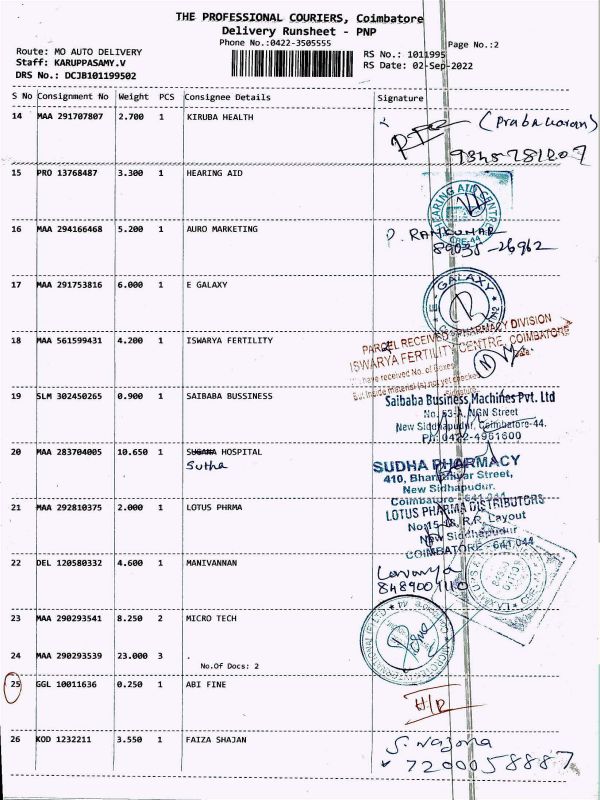 THE PROFESSIONAL COURIERS, Coimbatore
Delivery Runsheet - PNP
Phone No.:0422-3505555
Page No.:2
Route: MO AUTO DELIVERY
Staff: KARUPPASAMY.V
DRS No.: DCJB101199502
RS No.: 1011995
RS Date: 02-Sep-2022
S No Consignment No Weight PCS Consignee Details Signature
14 MAA 291707807 2.700 1 KIRUBA HEALTH
(Prabakaran)
15 PRO 13768487 3.300 1 HEARING AID
HEARING AID CENTRE
CBE-44
16 MAA 294166468 5.200 1 AURO MARKETING
17 MAA 291753816 6.000 1 E GALAXY
E GALAXY
18 MAA 561599431 4.200 1 ISWARYA FERTILITY
PARCEL RECEIVED PHARMACY DIVISION
ISWARYA FERTILITY CENTRE, COIMBATORE
have received No. of Boxes
But inside material(s) not yet checked
Signature
Date:
19 SLM 302450265 0.900 1 SAIBABA BUSSINESS
Saibaba Business Machines Pvt. Ltd
No. 53-A, NGN Street
New Siddhapudur, Coimbatore-44.
PH: 0422-4951600
20 MAA 283704005 10.650 1 SUGANA HOSPITAL
Sutha
SUDHA PHARMACY
410, Bharathiyar Street,
New Sidhapudur.
Coimbatore - 641 044
21 MAA 292810375 2.000 1 LOTUS PHRMA
LOTUS PHARMA DISTRIBUTORS
No:15-18, R.R. Layout
New Siddhapudur
COIMBATORE - 641 044
22 DEL 120580332 4.600 1 MANIVANNAN
Lavanya
8489001110
23 MAA 290293541 8.250 2 MICRO TECH
24 MAA 290293539 23.000 3 .
No.Of Docs: 2
25 GGL 10011636 0.250 1 ABI FINE
H/R
26 KOD 1232211 3.550 1 FAIZA SHAJAN
7200058887